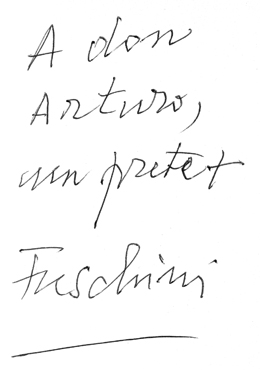 A don
Arturo,
un prete
Fuschini